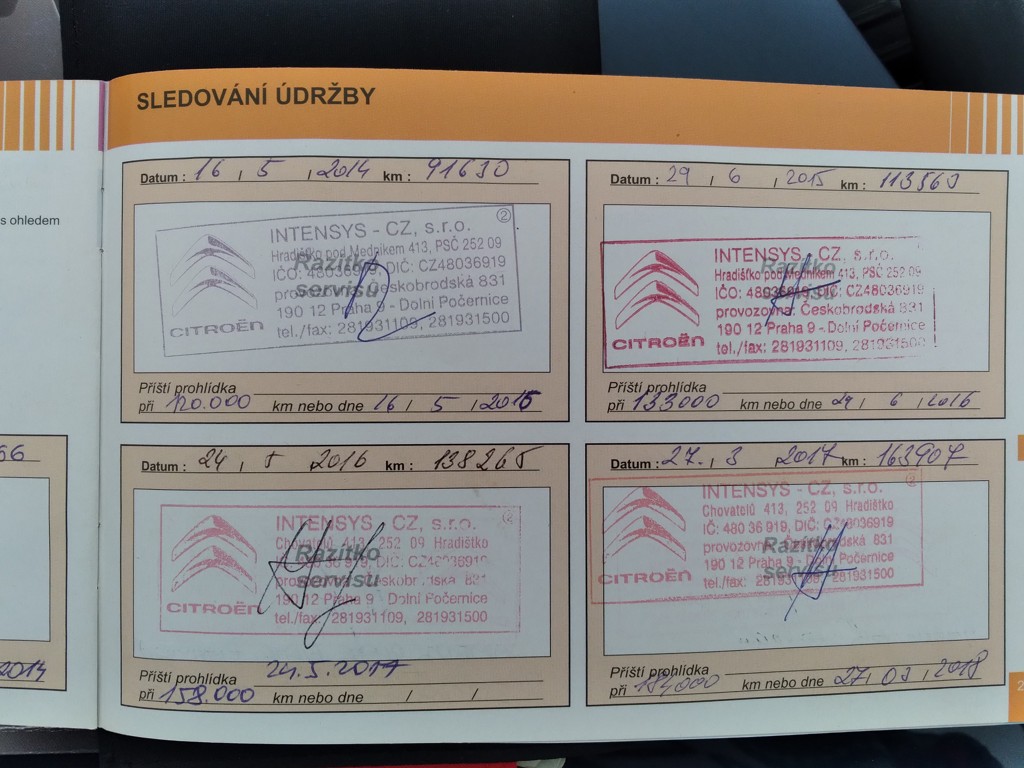 SLEDOVÁNÍ ÚDRŽBY
s ohledem
66
2014
Datum : 16 / 5 / 2014 km : 91630
②
INTENSYS - CZ, s.r.o.
Hradišťko pod Medníkem 413, PSČ 252 09
IČO: 48036919, DIČ: CZ48036919
provozovna: Českobrodská 831
190 12 Praha 9 - Dolní Počernice
tel./fax: 281931109, 281931500
CITROËN
Razítko
servisu
Příští prohlídka
při 120.000 km nebo dne 16 / 5 / 2015
Datum : 29 / 6 / 2015 km : 113563
INTENSYS - CZ, s.r.o.
Hradišťko pod Medníkem 413, PSČ 252 09
IČO: 48036919, DIČ: CZ48036919
provozovna: Českobrodská 831
190 12 Praha 9 - Dolní Počernice
tel./fax: 281931109, 281931500
CITROËN
Razítko
servisu
Příští prohlídka
při 133000 km nebo dne 29 / 6 / 2016
Datum : 24 / 5 2016 km : 138265
②
INTENSYS - CZ, s.r.o.
Chovatelů 413, 252 09 Hradištko
36 919, DIČ: CZ48036919
provozovna: Českobrodská 831
190 12 Praha 9 - Dolní Počernice
tel./fax: 281931109, 281931500
CITROËN
Razítko
servisu
Příští prohlídka 24.5.2017
při 158.000 km nebo dne / /
Datum : 27. / 3 2017 km : 163907
②
INTENSYS - CZ, s.r.o.
Chovatelů 413, 252 09 Hradištko
IČ: 480 36 919, DIČ: CZ48036919
provozovna: Českobrodská 831
190 12 Praha 9 - Dolní Počernice
tel./fax: 281931109, 281931500
CITROËN
Razítko
servisu
Příští prohlídka
při 184000 km nebo dne 27 / 03 / 2018
2